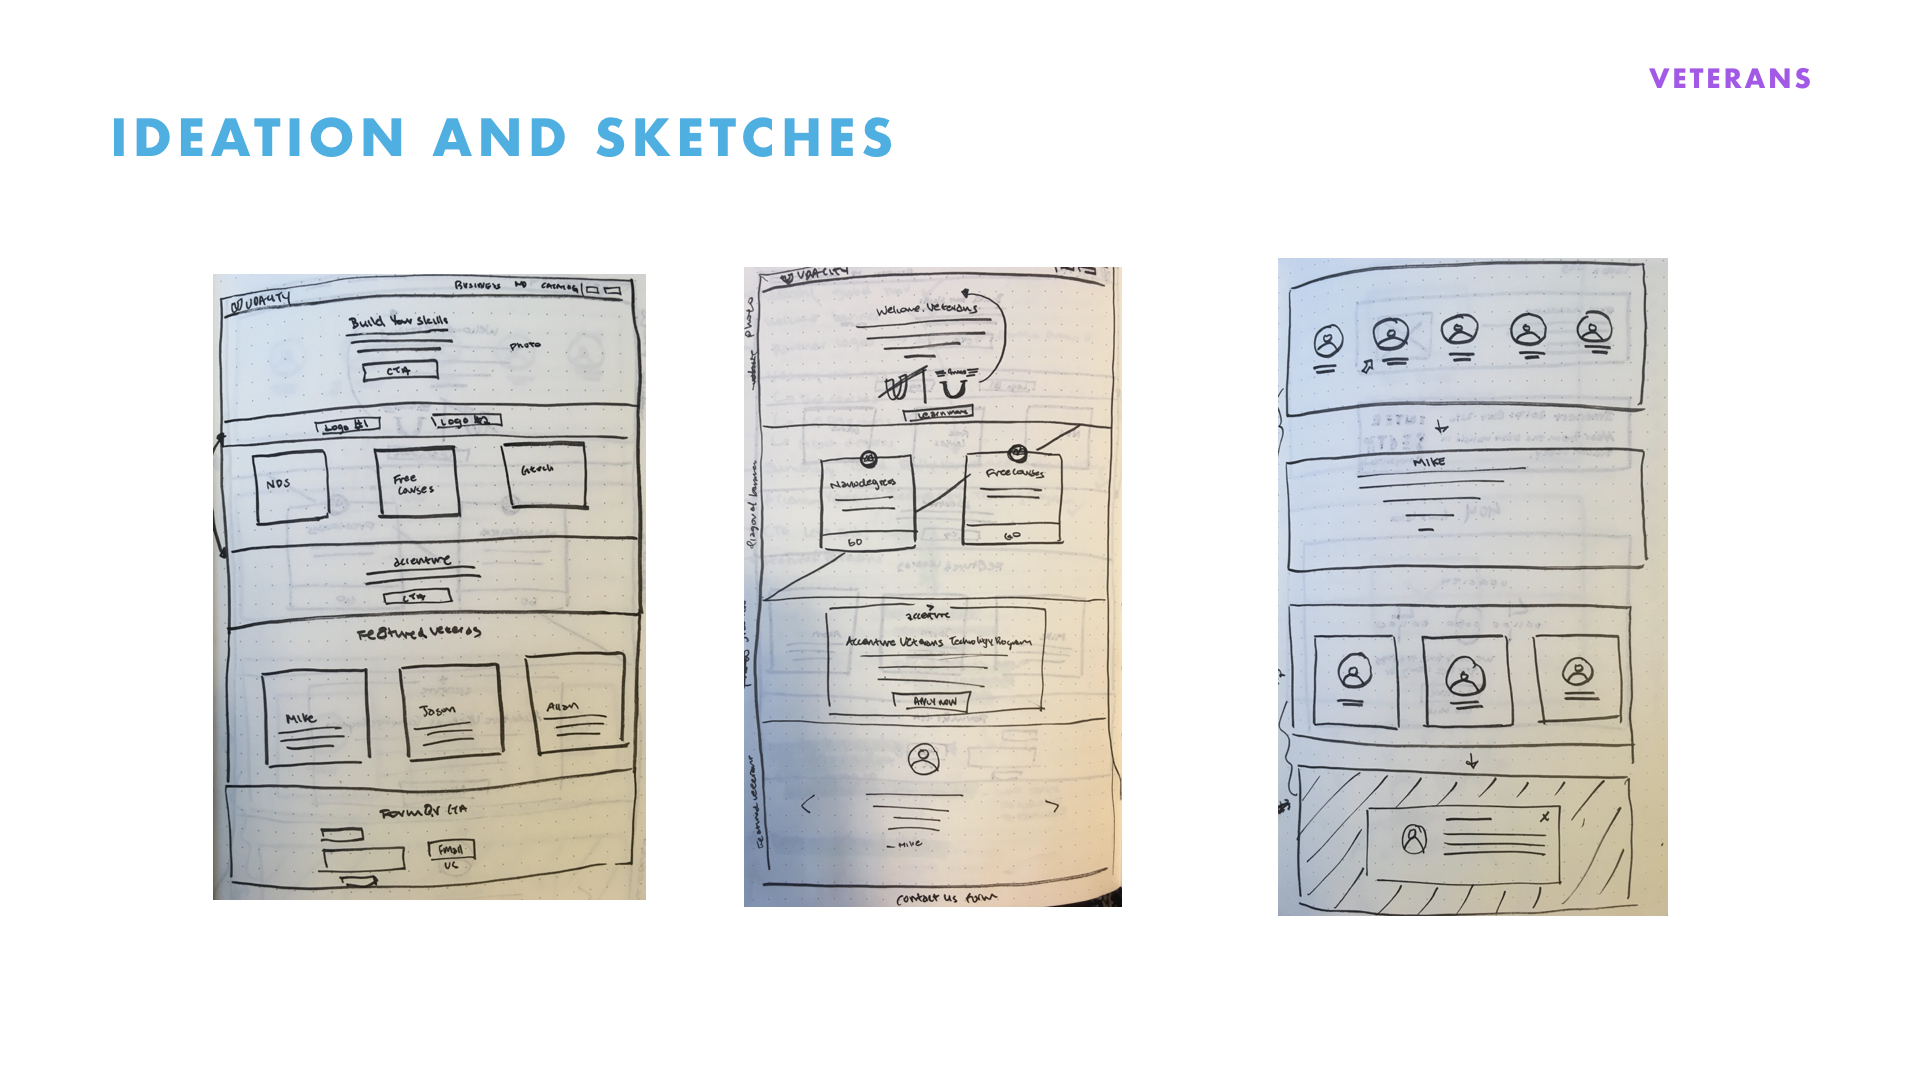 VETERANS
IDEATION AND SKETCHES
UDACITY
Business ND Catalog
Build Your Skills
photo
CTA
Logo #1 Logo #2
NDS
Free
Courses
accenture
CTA
Featured
Mike
Jason
Allan
Form or CTA
Email
us
UDACITY
photo
Welcome, Veterans
Learn more
diagonal banner
Nanodegrees
Free courses
GO
GO
accenture
Accenture Veterans Technology Program
APPLY NOW
Featured veterans
- Mike
contact us form
MIKE
X